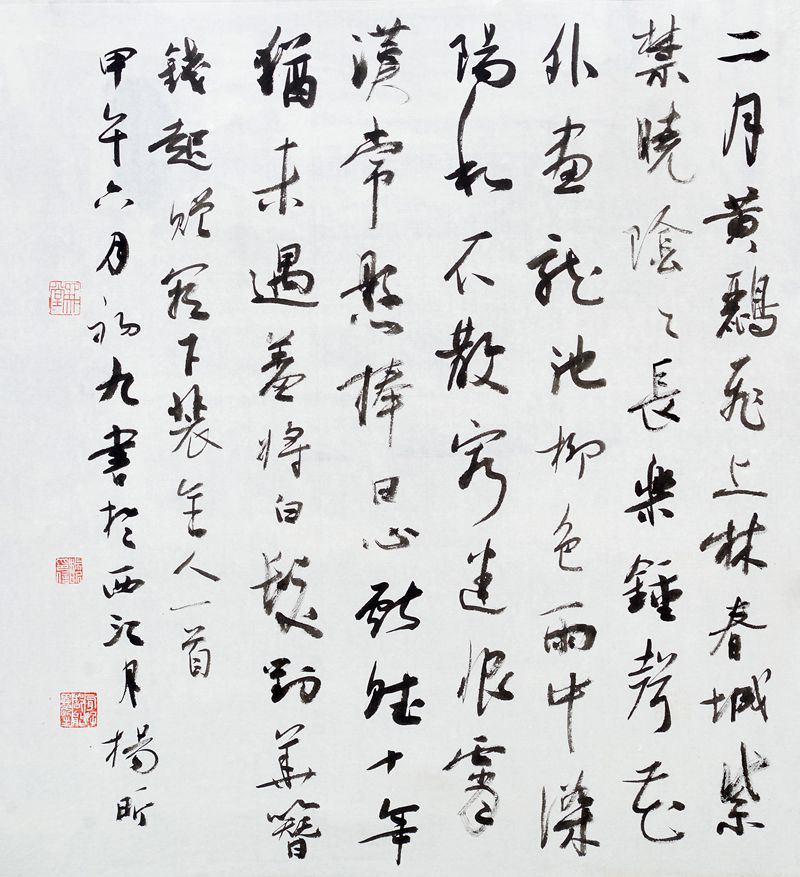 二月黃鸝飛上林春城紫
禁曉陰〻長樂鍾聲花
外盡龍池柳色雨中深
陽和不散窮途恨霄
漢常懸捧日心獻賦十年
猶未遇羞將白髮對華簪
錢起贈闕下裴舍人一首
甲午六月初九書於西江月楊昕